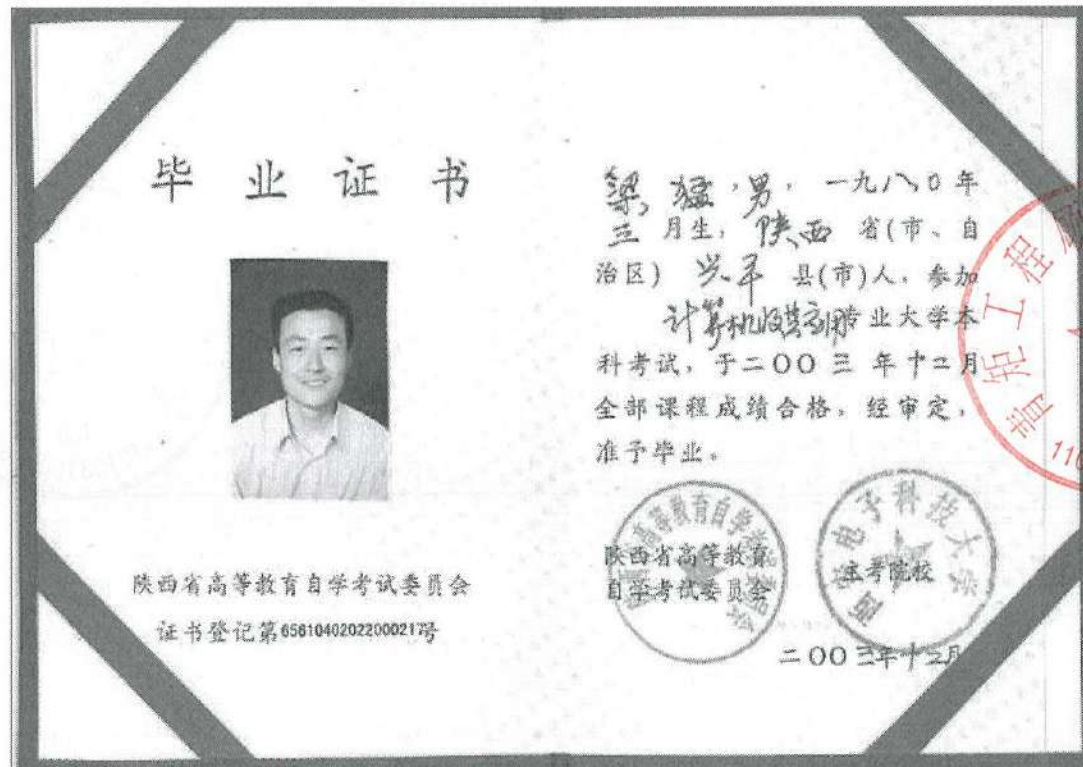 毕业证书
陕西省高等教育自学考试委员会
证书登记第65610402022000217号
梁猛,男,一九八〇年
三月生,陕西省(市、自
治区)兴平县(市)人,参加
计算机及其应用专业大学本
科考试,于二〇〇三年十二月
全部课程成绩合格,经审定,
准予毕业。
陕西省高等教育
自学考试委员会
主考院校
西安电子科技大学
二〇〇三年十二月
工程
110